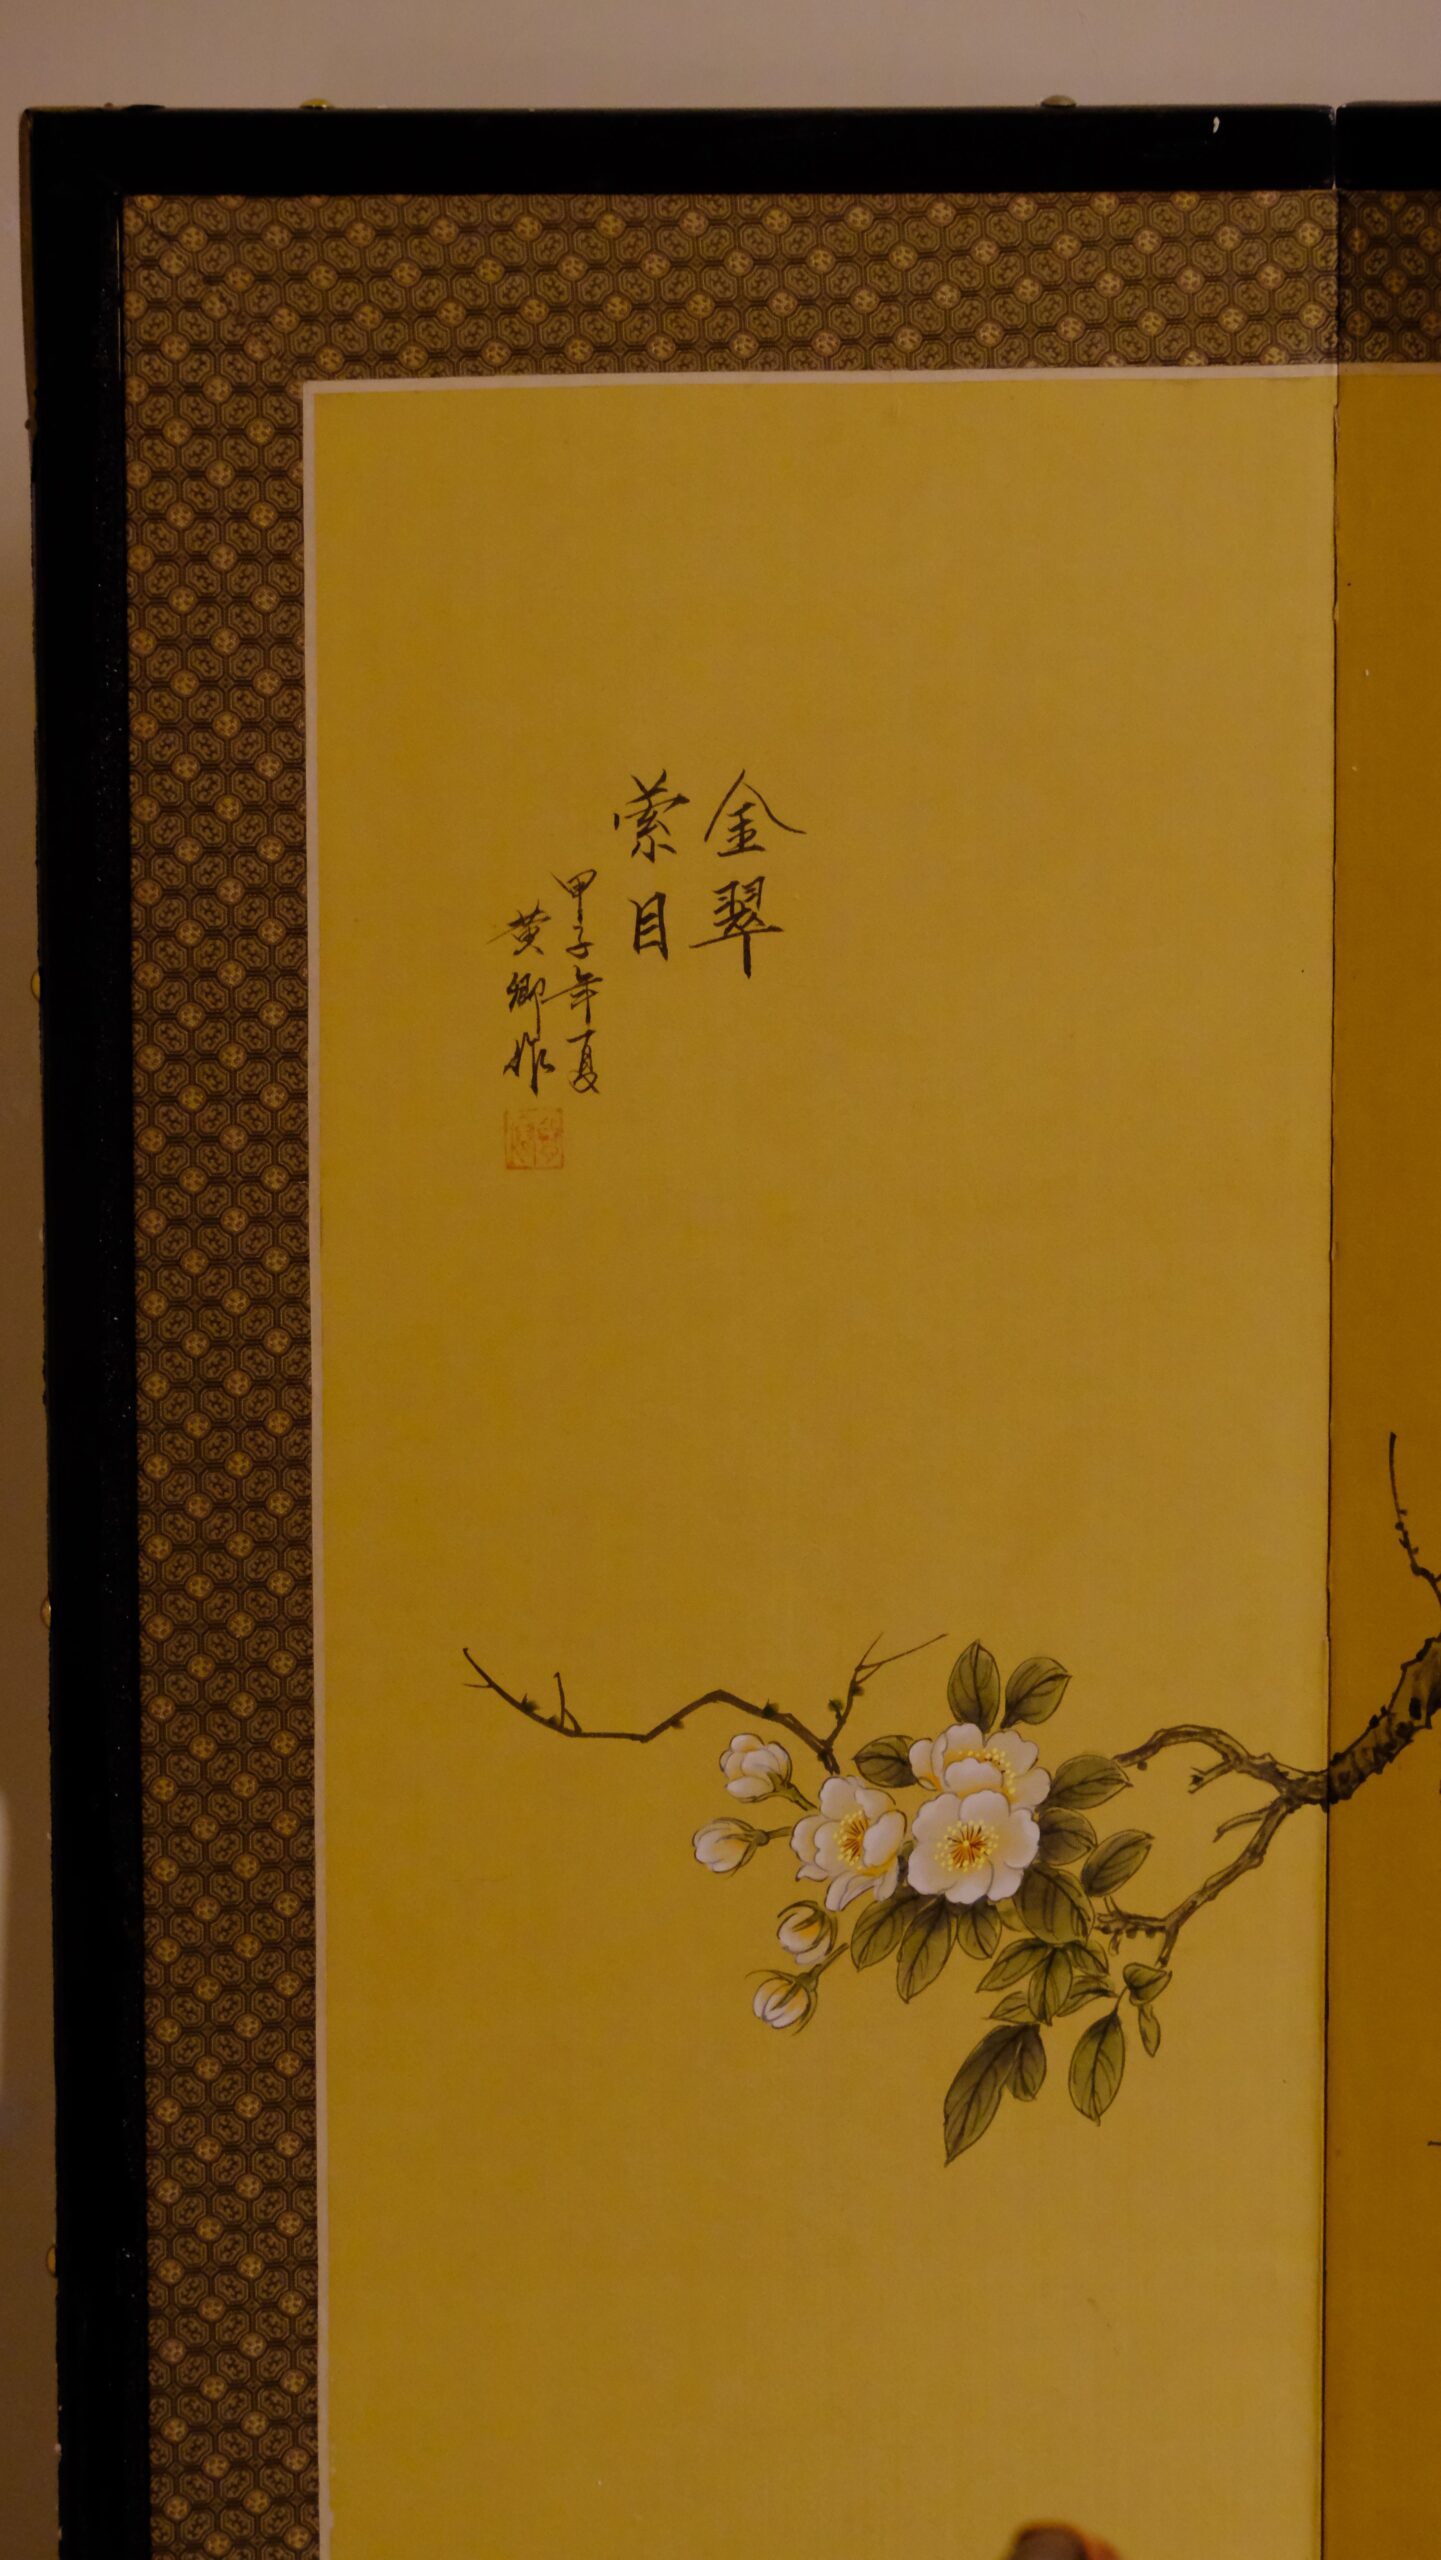 金翠
萦目
甲子年夏
黄卿作